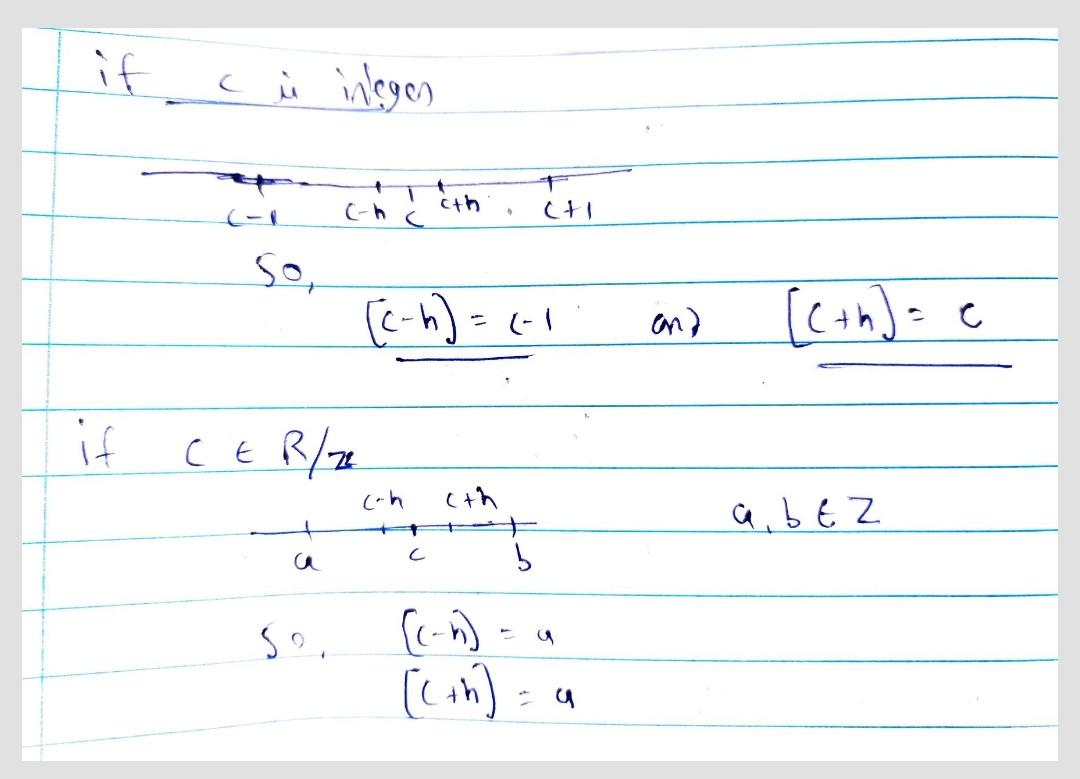 if c is integer
c-1 c-h c c+h c+1
So,
[c-h] = c-1 and [c+h] = c
if C ∈ R/Z
c-h c+h
a, b ∈ Z
a c b
So, [c-h] = a
[c+h] = a